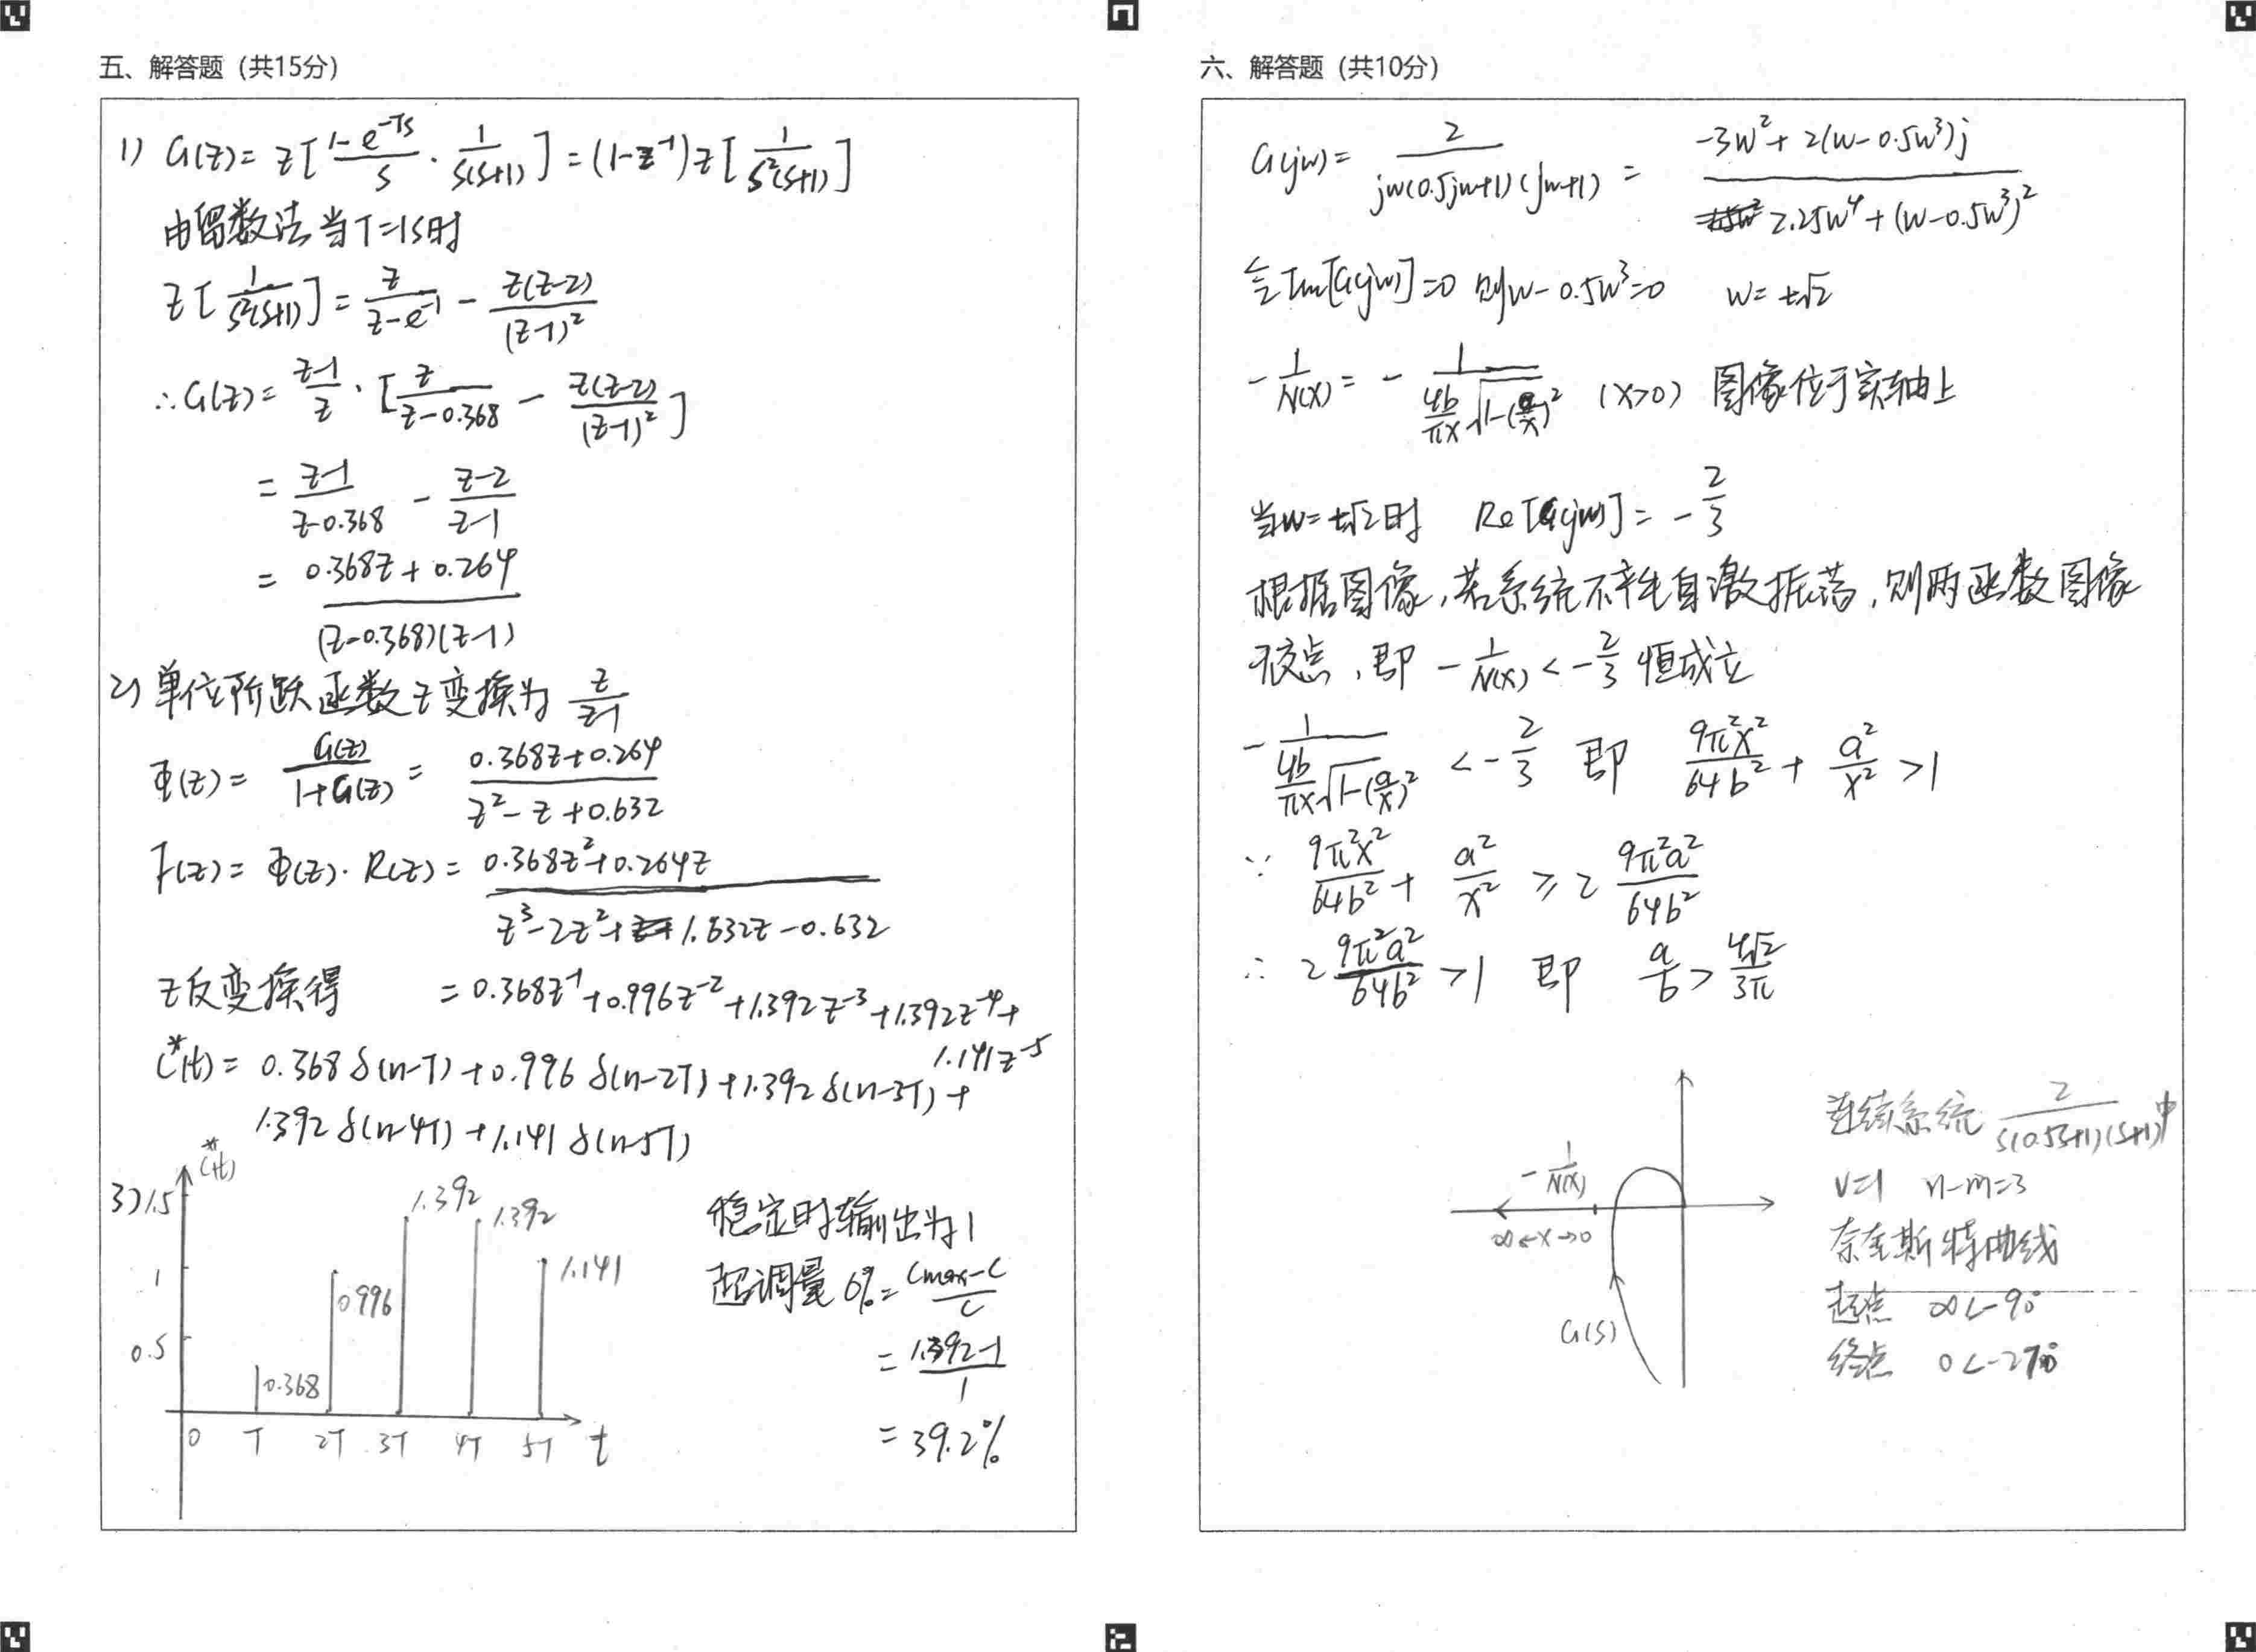 五、解答题（共15分）
1) G(z)= Z[ (1-e^{-Ts})/s · 1/(s(s+1)) ] = (1-z^{-1}) Z[ 1/(s²(s+1)) ]
由留数法当T=1s时
Z[ 1/(s²(s+1)) ] = z/(z-e^{-1}) - z(z-2)/(z-1)²
∴G(z)= (z-1)/z · [ z/(z-0.368) - z(z-2)/(z-1)² ]
= (z-1)/(z-0.368) - (z-2)/(z-1)
= (0.368z+0.264)/((z-0.368)(z-1))
2) 单位阶跃函数z变换为 z/(z-1)
Φ(z)= G(z)/(1+G(z)) = (0.368z+0.264)/(z²-z+0.632)
F(z)= Φ(z)·R(z)= (0.368z²+0.264z)/(z³-2z²+1.632z-0.632)
z反变换得 =0.368z^{-1}+0.996z^{-2}+1.392z^{-3}+1.392z^{-4}+
1.141z^{-5}
C*(t)= 0.368δ(n-T)+0.996δ(n-2T)+1.392δ(n-3T)+
1.392δ(n-4T)+1.141δ(n-5T)
3)
C*(t)
1.5
1
0.5
0.368
0.996
1.392
1.392
1.141
0 T 2T 3T 4T 5T t
稳定时输出为1
超调量 σ%= (Cmax-C)/C
= (1.392-1)/1
= 39.2%
六、解答题（共10分）
G(jw)= 2/(jw(0.5jw+1)(jw+1)) = (-3w²+2(w-0.5w³)j)/(2.25w⁴+(w-0.5w³)²)
令Im[G(jw)]=0 则w-0.5w³=0 w=±√2
-1/N(X) = -1/((4b/πX)√(1-(a/X)²)) (X>0) 图像位于实轴上
当w=±√2时 Re[G(jw)]= -2/3
根据图像,若系统不产生自激振荡,则两函数图像
无交点,即 -1/N(X) < -2/3 恒成立
-1/((4b/πX)√(1-(a/X)²)) < -2/3 即 9π²X²/64b² + a²/X² >1
∵ 9π²X²/64b² + a²/X² ≥ 2 9π²a²/64b²
∴ 2 9π²a²/64b² >1 即 a/b > 4√2/3π
-1/N(X)
∞←X→0
G(s)
连续系统 2/(s(0.5s+1)(s+1)) 中
v=1 n-m=3
奈奎斯特曲线
起点 ∞∠-90°
终点 0∠-270°